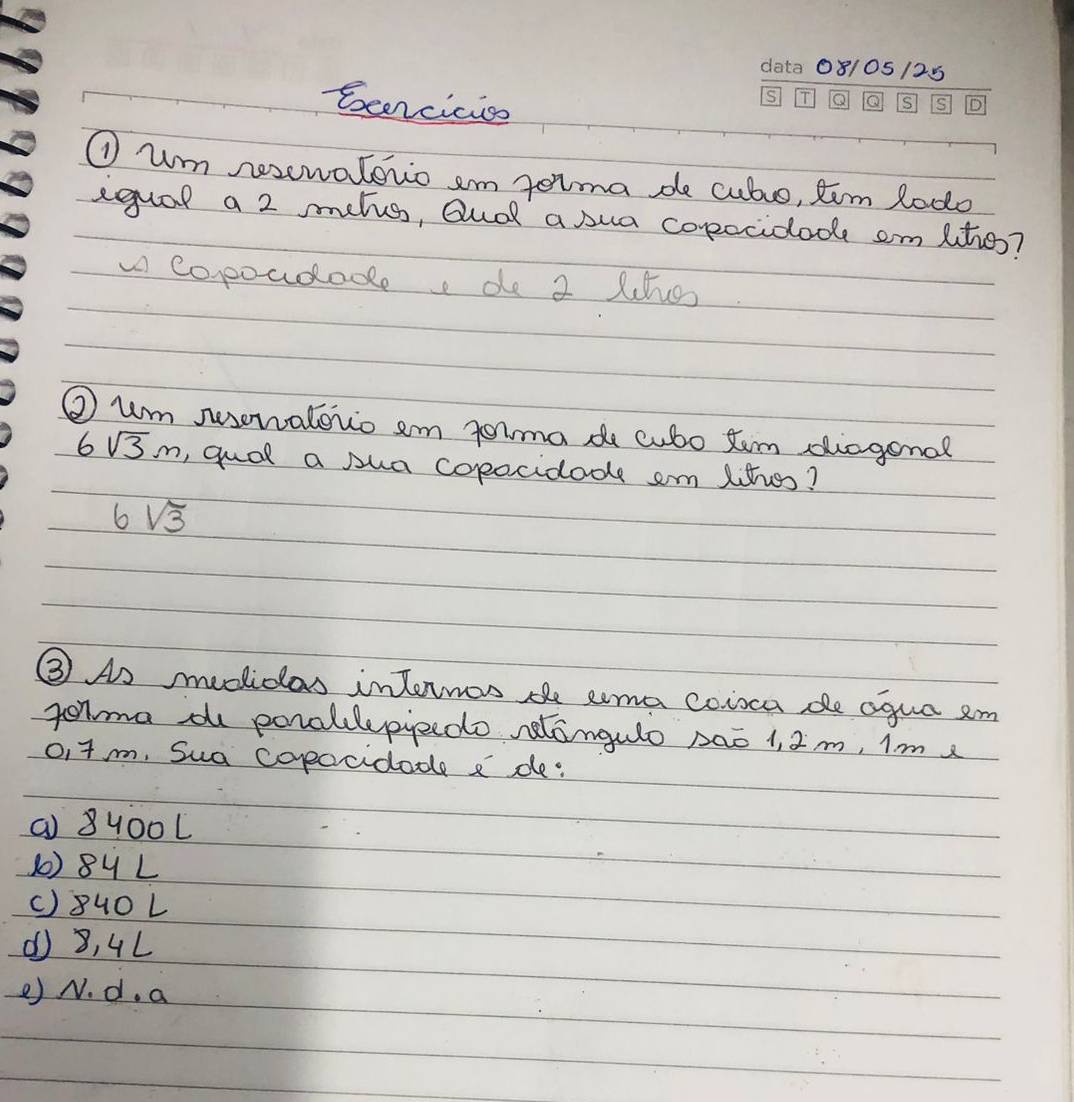 data 08/05/25
S T Q Q S S D
Exercícios
① Um reservatório em forma de cubo, tem lado
igual a 2 metros, Qual a sua capacidade em litros?
a capacidade é de 2 litros
② Um reservatório em forma de cubo tem diagonal
6√3 m, qual a sua capacidade em litros?
6√3
③ As medidas internas de uma caixa de água em
forma de paralelepipedo retângulo são 1,2 m, 1m e
0,7 m. Sua capacidade é de:
a) 8400 L
b) 84 L
c) 840 L
d) 8,4 L
e) N.d.a